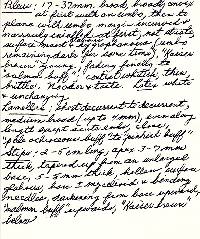 Pileus: 17-32mm. broad, broadly convex
at first with an umbo, then to
plane with margin incurved
narrowly at first, not striate,
surface moist & hygrophanous (umbo
remaining dark for some time), "Kaiser
brown" young, fading finally to
"salmon buff", context whitish, then
brittle. No odor or taste. Later white
unchanging.
Lamellae: short decurrent to decurrent,
medium broad (up to 4mm), even along
length except acute ends, close,
"pale ochraceous buff" to "pinkish buff"
Stipe: 2-5 cm long, apex 3-7 mm
thick, tapered up from an enlarged
base, 5-8 mm thick, hollow, surface
glabrous, base mycelioid & binding
needles, darkening from base upwards,
"salmon buff" upwards, "Kaiser brown"
below